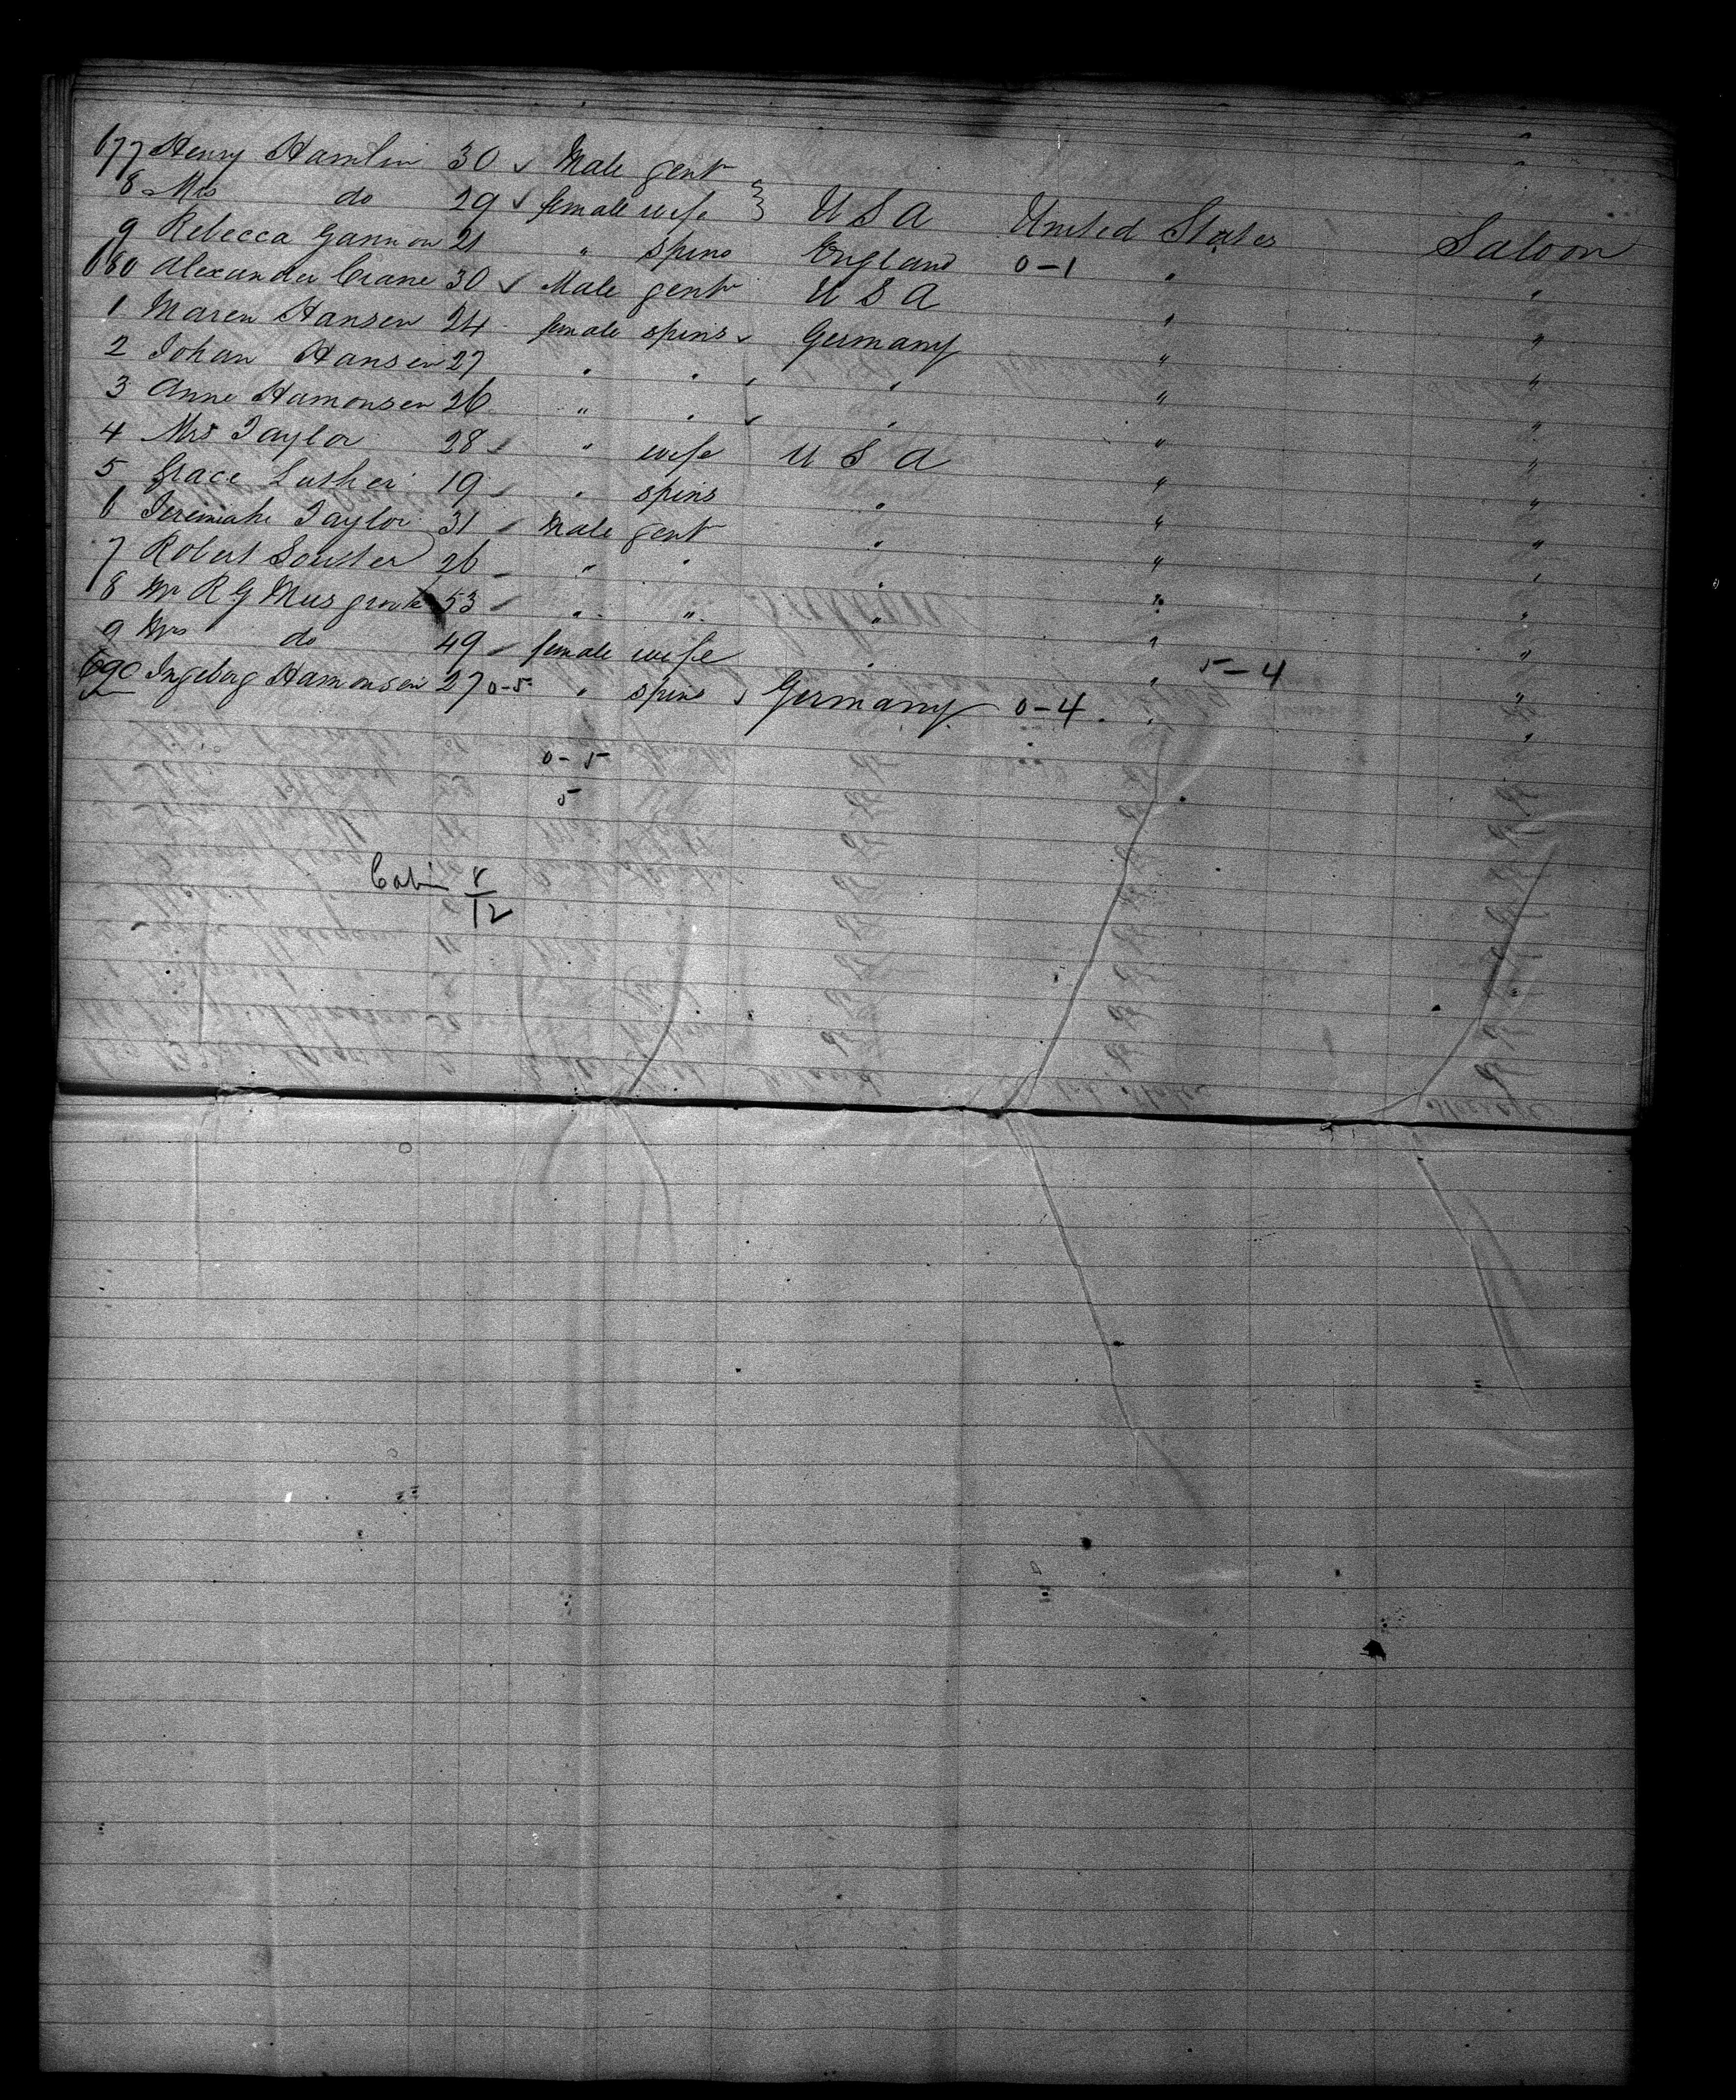 677 Henry Hamlin 30 ✓ Male gent
8 Mrs do 29 ✓ female wife } U S A United States Saloon
9 Rebecca Gannon 21 " spins England 0-1 " "
680 Alexander Crane 30 ✓ Male gent U S A " "
1 Maren Hansen 24 female spins ✓ Germany " "
2 Johan Hansen 27 " " ✓ " " "
3 Anne Hamonsen 26 " " ✓ " " "
4 Mrs Taylor 28 ✓ " wife U S A " "
5 Grace Luther 19 ✓ " spins " " "
6 Jeremiah Taylor 31 ✓ Male gent " " "
7 Robert Souter 26 " " " " "
8 Mr R G Musgrove 53 ✓ " " " " "
9 Mrs do 49 ✓ female wife " " 5-4 "
690 Ingeborg Hamonsen 27 0-5 " spins ✓ Germany 0-4 " "
0-5
5
Cabin 8
12